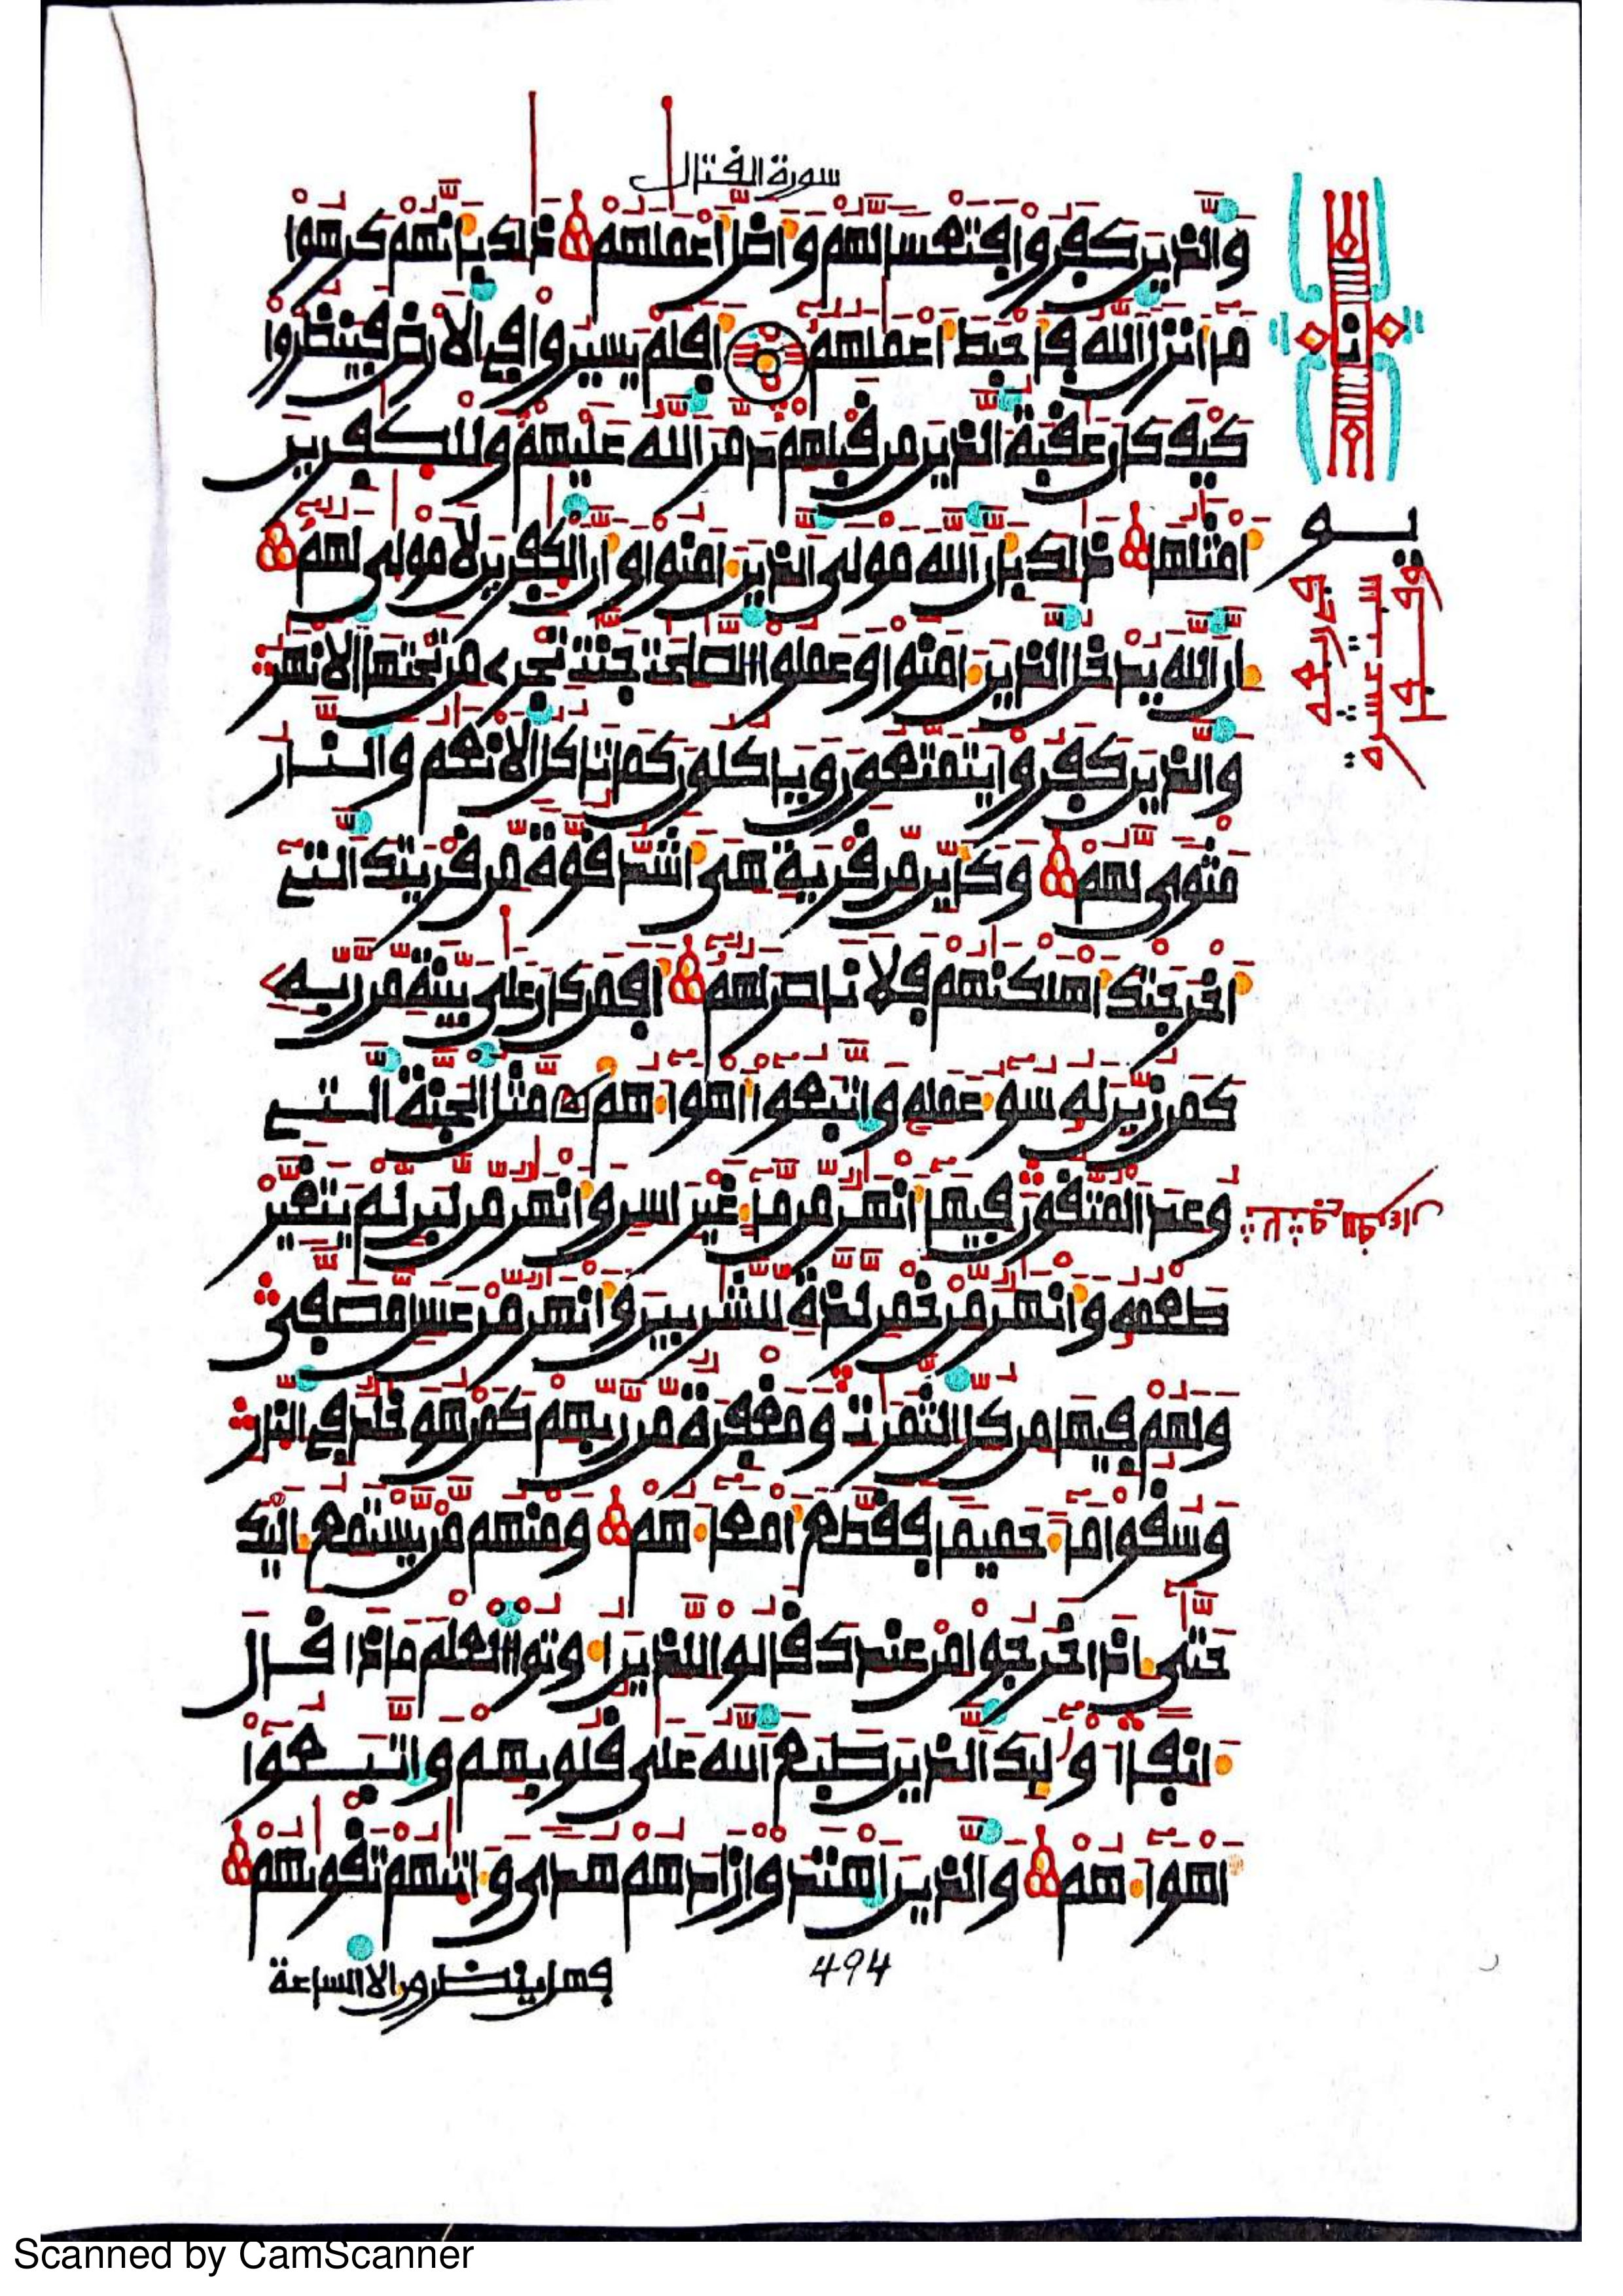 سورة القتال
والذين كفروا فتعسا لهم وأضل أعملهم ذلك بأنهم كرهوا
ما أنزل الله فأحبط أعملهم أفلم يسيروا في الأرض فينظروا
كيف كان عقبة الذين من قبلهم دمر الله عليهم وللكفرين
أمثلها ذلك بأن الله مولى الذين ءامنوا وأن الكفرين لا مولى لهم
إن الله يدخل الذين ءامنوا وعملوا الصلحت جنت تجري من تحتها الأنهر
والذين كفروا يتمتعون ويأكلون كما تأكل الأنعم والنار
مثوى لهم وكأين من قرية هي أشد قوة من قريتك التي
أخرجتك أهلكنهم فلا ناصر لهم أفمن كان على بينة من ربه
كمن زين له سوء عمله واتبعوا أهواءهم مثل الجنة التي
وعد المتقون فيها أنهر من ماء غير ءاسن وأنهر من لبن لم يتغير
طعمه وأنهر من خمر لذة للشربين وأنهر من عسل مصفى
ولهم فيها من كل الثمرت ومغفرة من ربهم كمن هو خلد في النار
وسقوا ماء حميما فقطع أمعاءهم ومنهم من يستمع إليك
حتى إذا خرجوا من عندك قالوا للذين أوتوا العلم ماذا قال
ءانفا أولئك الذين طبع الله على قلوبهم واتبعوا
أهواءهم والذين اهتدوا زادهم هدى وءاتيهم تقويهم
494
فهل ينظرون إلا الساعة
Scanned by CamScanner